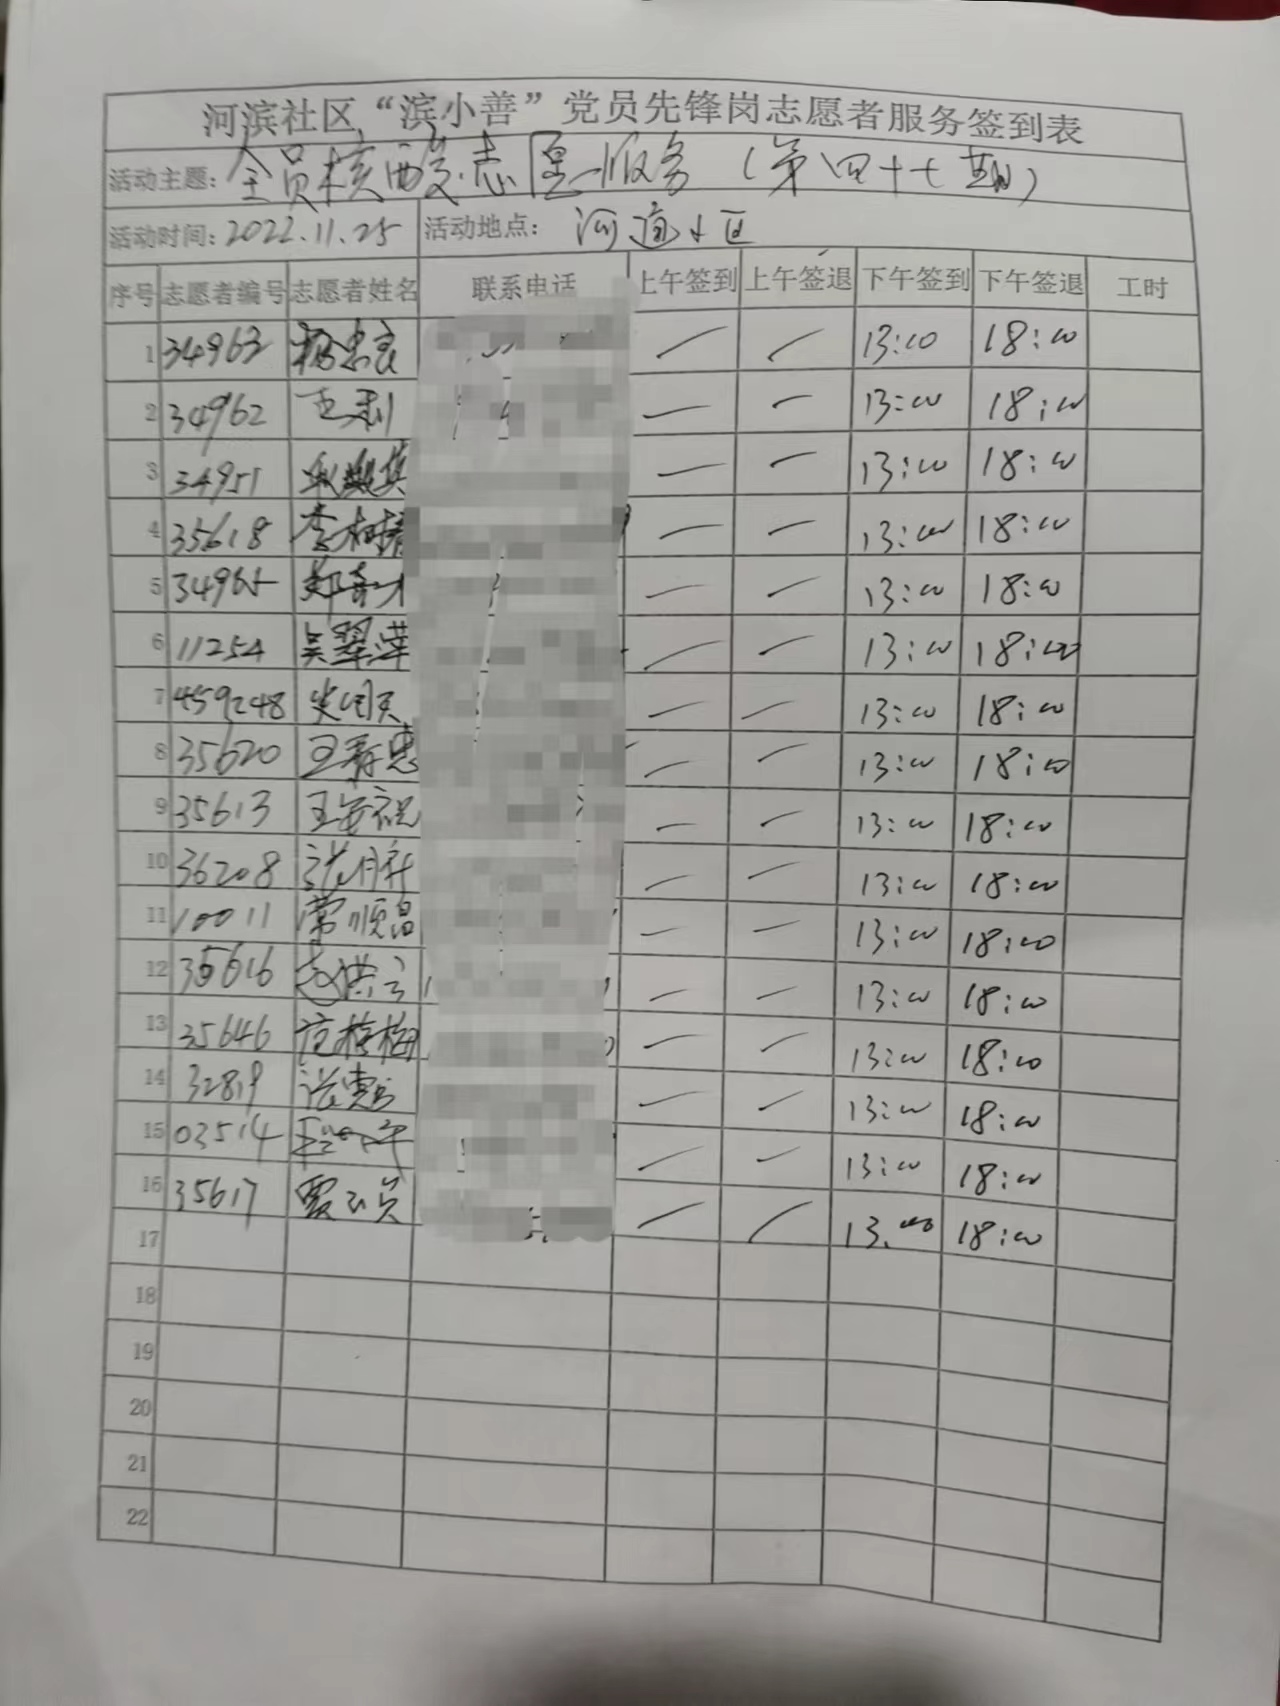 河滨社区“滨小善”党员先锋岗志愿者服务签到表
活动主题：全员核酸志愿服务（第四十七期）
活动时间：2022.11.25 活动地点：河道小区
序号 志愿者编号 志愿者姓名 联系电话 上午签到 上午签退 下午签到 下午签退 工时
1 34963 13:00 18:00
2 34962 13:00 18:00
3 34951 13:00 18:00
4 35618 13:00 18:00
5 34965 13:00 18:00
6 11254 13:00 18:00
7 459248 13:00 18:00
8 35620 13:00 18:00
9 35613 王安祝 13:00 18:00
10 36208 13:00 18:00
11 10011 常顺昌 13:00 18:00
12 35616 赵洪云 13:00 18:00
13 35646 范梅梅 13:00 18:00
14 32819 13:00 18:00
15 03514 13:00 18:00
16 35617 13:00 18:00
17
18
19
20
21
22